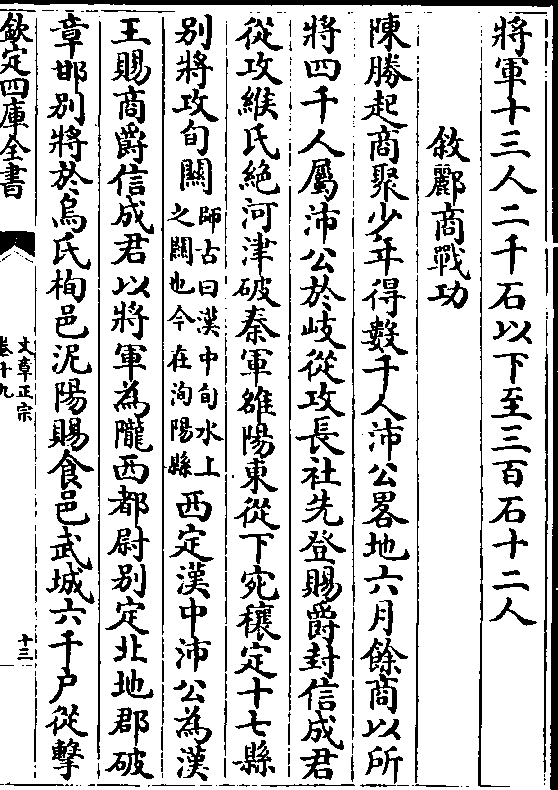 將軍十三人二千石以下至三百石十二人
敘酈商戰功
陳勝起商聚少年得數千人沛公畧地六月餘商以所
將四千人屬沛公於岐從攻長社先登賜爵封信成君
從攻緱氏絶河津破秦軍雒陽東從下宛穰定十七縣
别將攻旬關師古曰漢中旬水上之關也今在洵陽縣西定漢中沛公為漢
王賜商爵信成君以將軍為隴西都尉别定北地郡破
章邯别將於烏氏栒邑泥陽賜食邑武城六千户從擊
欽定四庫全書
文章正宗
卷十九
十三